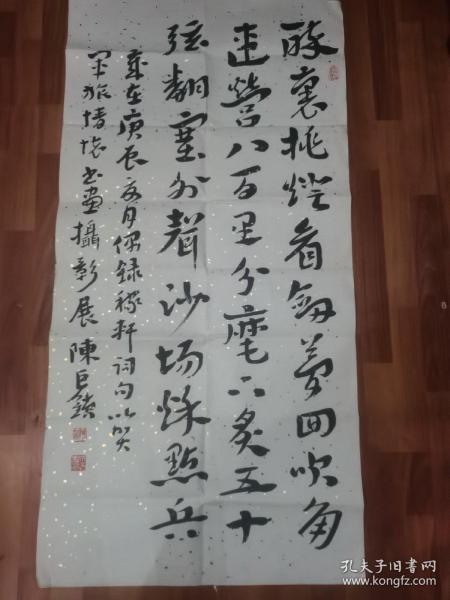 醉裏挑燈看劍夢回吹角
連營八百里分麾下炙五十
弦翻塞外聲沙場秋點兵
歲在庚辰夏月偶錄稼軒詞句以筴
軍旅情懷書畫攝影展 陳巨鎖
孔夫子旧书网
www.kongfz.com